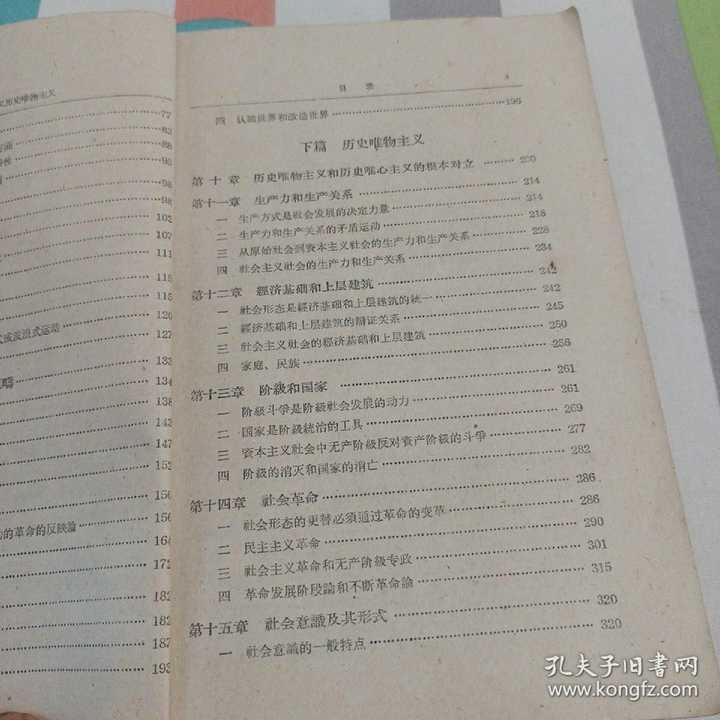 历史唯物主义
77
83
88
95
98
98
103
107
111
115
115
120
127
133
134
143
147
152
156
的革命的反映論
156
164
172
182
182
187
193
目 录 3
四 认識世界和改造世界 195
下篇 历史唯物主义
第十章 历史唯物主义和历史唯心主义的根本对立 200
第十一章 生产力和生产关系 214
一 生产方式是社会发展的决定力量 214
二 生产力和生产关系的矛盾运动 218
三 从原始社会到資本主义社会的生产力和生产关系 228
四 社会主义社会的生产力和生产关系 234
第十二章 經济基础和上层建筑 242
一 社会形态是經济基础和上层建筑的統一 242
二 經济基础和上层建筑的辯証关系 245
三 社会主义社会的經济基础和上层建筑 250
四 家庭、民族 256
第十三章 阶級和国家 261
一 阶級斗爭是阶級社会发展的动力 261
二 国家是阶級統治的工具 269
三 資本主义社会中无产阶級反对資产阶級的斗爭 277
四 阶級的消灭和国家的消亡 282
第十四章 社会革命 286
一 社会形态的更替必須通过革命的变革 286
二 民主主义革命 290
三 社会主义革命和无产阶級专政 301
四 革命发展阶段論和不断革命論 315
第十五章 社会意識及其形式 320
一 社会意識的一般特点 320
孔夫子旧书网
www.kongfz.com